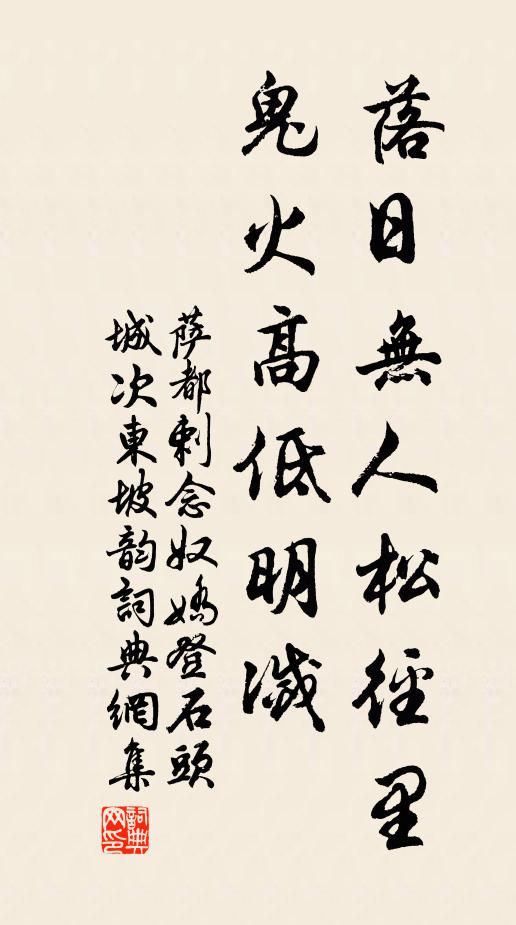 落日無人松徑里
鬼火高低明滅
薩都剌念奴嬌登石頭
城次東坡韵詞典網集
詞典網印